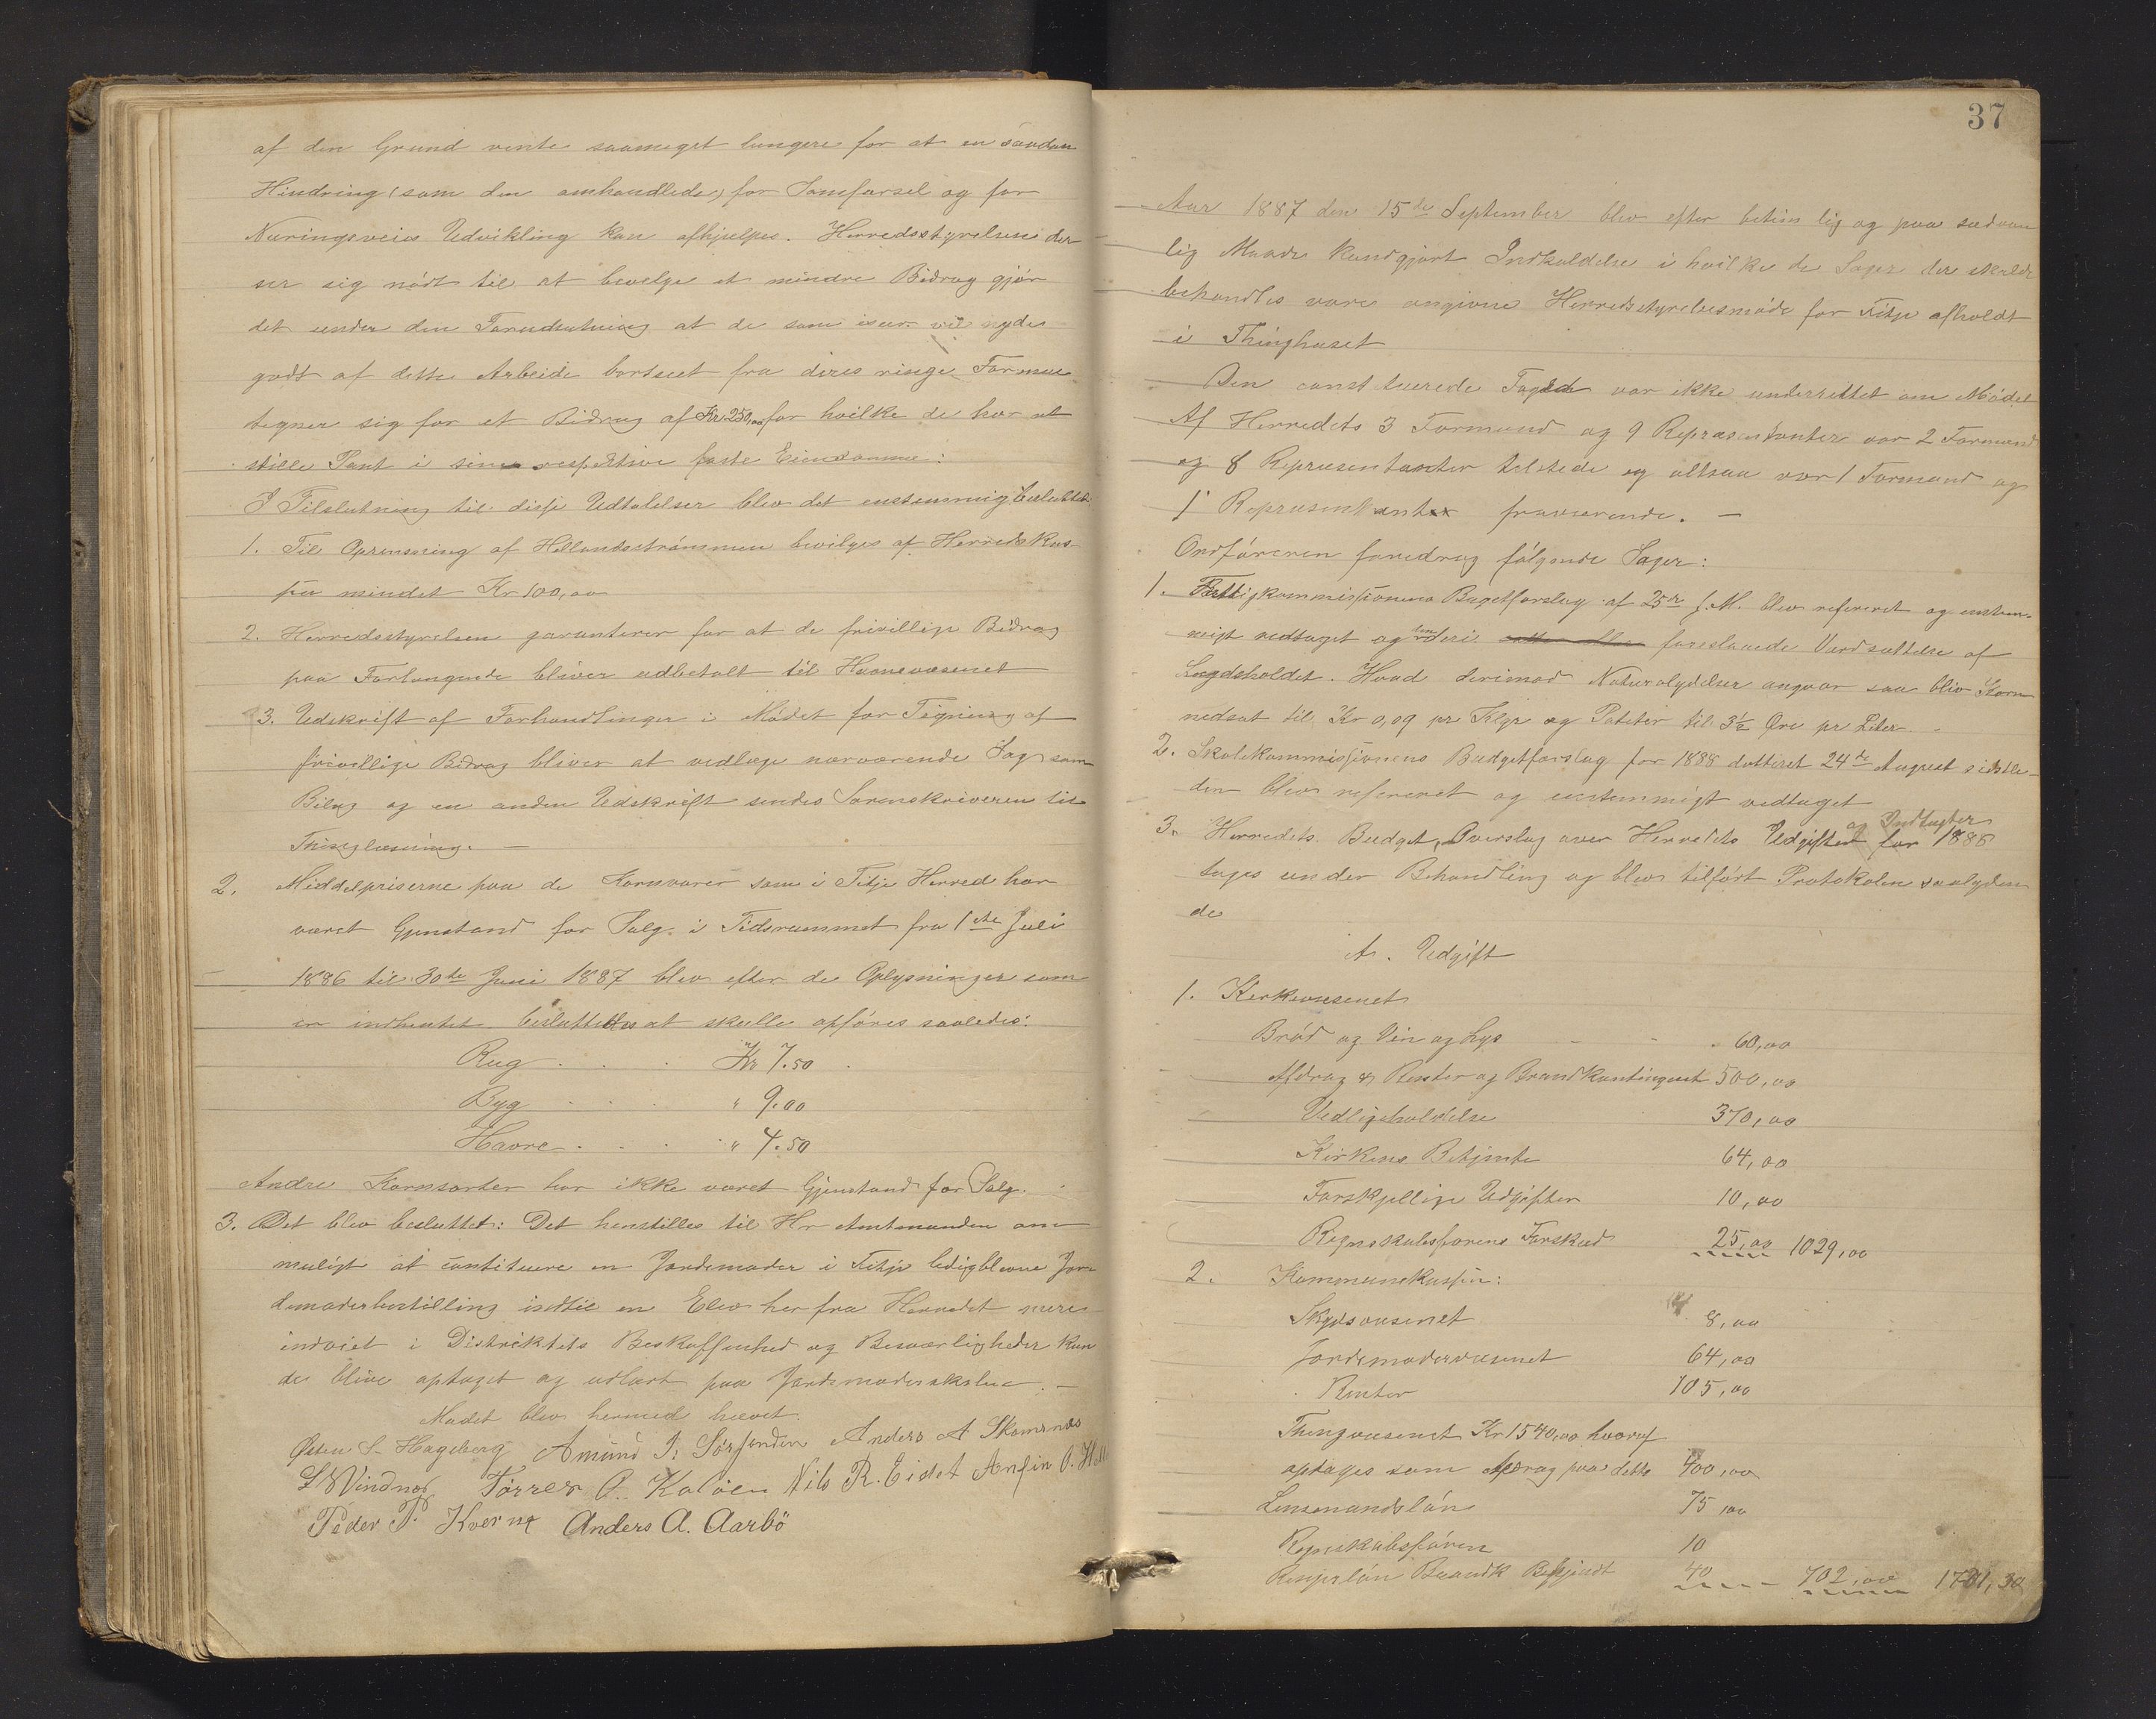 af den Grund vente saameget længere for at en saadan
Hindring (som den omhandlede) for Samfærsel og for
Næringsveies Udvikling kan afhjælpes. Herredsstyrelsen der
ser sig nødt til at bevilge et mindre Bidrag gjør
det under den Forudsætning at de som især vil nyde
godt af dette Arbeide bortseet fra deres ringe Formue
tegner sig for et Bidrag af Kr 250,00 for hvilke de har at
stille Pant i sine respektive faste Eiendomme:
I Tilslutning til disse Udtalelser blev det enstemmig besluttet:
1. Til Oprensning af Hellandsstrømmen bevilges af Herredskas-
sen mindst Kr 100,00
2. Herredsstyrelsen garanterer for at de frivillige Bidrag
paa Forlangende bliver udbetalt til Havnevæsenet
3. Udskrift af Forhandlinger i Mødet for Tegning af
frivillige Bidrag bliver at vedlægge nærværende Sag som
Bilag og en anden Udskrift sendes Sorenskriveren til
Thinglæsning. —
2. Middelpriserne paa de Kornvarer som i Fitje Herred har
været Gjenstand for Salg i Tidsrummet fra 1ste Juli
1886 til 30te Juni 1887 blev efter de Oplysninger som
er indhentet besluttedes at skulle opføres saaledes:
Rug . . . Kr 7.50
Byg . . . " 9.00
Havre . . . " 4.50
Andre Kornsorter har ikke været Gjenstand for Salg.
3. Det blev besluttet: Det henstilles til Hr Amtmanden om
muligt at constituere en Jordemoder i Fitje ledigblevne Jor-
demoderbestilling indtil en Elev her fra Herredet mere
indviet i Distriktets Beskaffenhed og Besværligheder kun-
de blive optaget og udlært paa Jordemoderskolen. —
Mødet blev hermed hævet.
Østen S. Hageberg Amund I. Sørfonden Anders A Skomsnes
S Vindnæs Tørres O. Kaløen Nils R. Eidet Anfin O. Hell
Peder P. Kverne Anders A. Aarbø
37
Aar 1887 den 15de September blev efter betimelig og paa sædvan
lig Maade kundgjort Indkaldelse i hvilke de Sager der skulde
behandles vare angivne Herredsstyrelsesmøde for Fitje afholdt
i Thinghuset
Den constituerede Foged var ikke underrettet om Mødet
Af Herredets 3 Formænd og 9 Repræsentanter var 2 Formænd
og 8 Repræsentanter tilstede og altsaa var 1 Formand og
1 Repræsentant fraværende. —
Ordføreren foredrog følgende Sager:
1. Fattigkommissionens Bugetforslag af 25de f.M. blev refereret og enstem-
migt vedtaget og den deri foreslaaede Værdsættelse af
Lægdsholdet. Hvad derimod Naturalydelser angaar saa blev Korn
nedsat til Kr 0,09 pr Klgr og Poteter til 3½ Øre pr Liter
2. Skolekommissionens Budgetforslag for 1888 datteret 24de August sidstle-
den blev refereret og enstemmigt vedtaget
3. Herredets Budget, Overslag over Herredets Udgifter og Indtægter for 1888
toges under Behandling og blev tilført Protokolen saalyden
de
A. Udgift
1. Kirkevæsenet
Brød og Vin og Lys - - . 60,00
Afdrag & Renter og Brandkontingent 500,00
Vedligeholdelse 370,00
Kirkens Betjente 64,00
Forskjellige Udgifter 10,00
Regnskabsførens Forskud 25,00 1029,00
2. Kommunekassen:
Skydsvæsenet 8,00
Jordemodervæsenet 64,00
Renter 105,00
Thingvæsenet Kr 1540,00 hvoraf
optages som Afdrag paa dette 400,00
Lensmandsløn 75,00
Regnskabsføren 10
Brandk 40 702,00